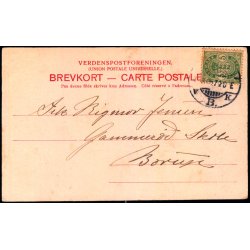 VERDENSPOSTFORENINGEN.
(UNION POSTALE UNIVERSELLE.)
BREVKORT — CARTE POSTALE
Paa denne Side skrives kun Adressen. Côté réservé à l'adresse.
K
B.
Frk. Rigmor Jensen
Gammerød Skole
Borup